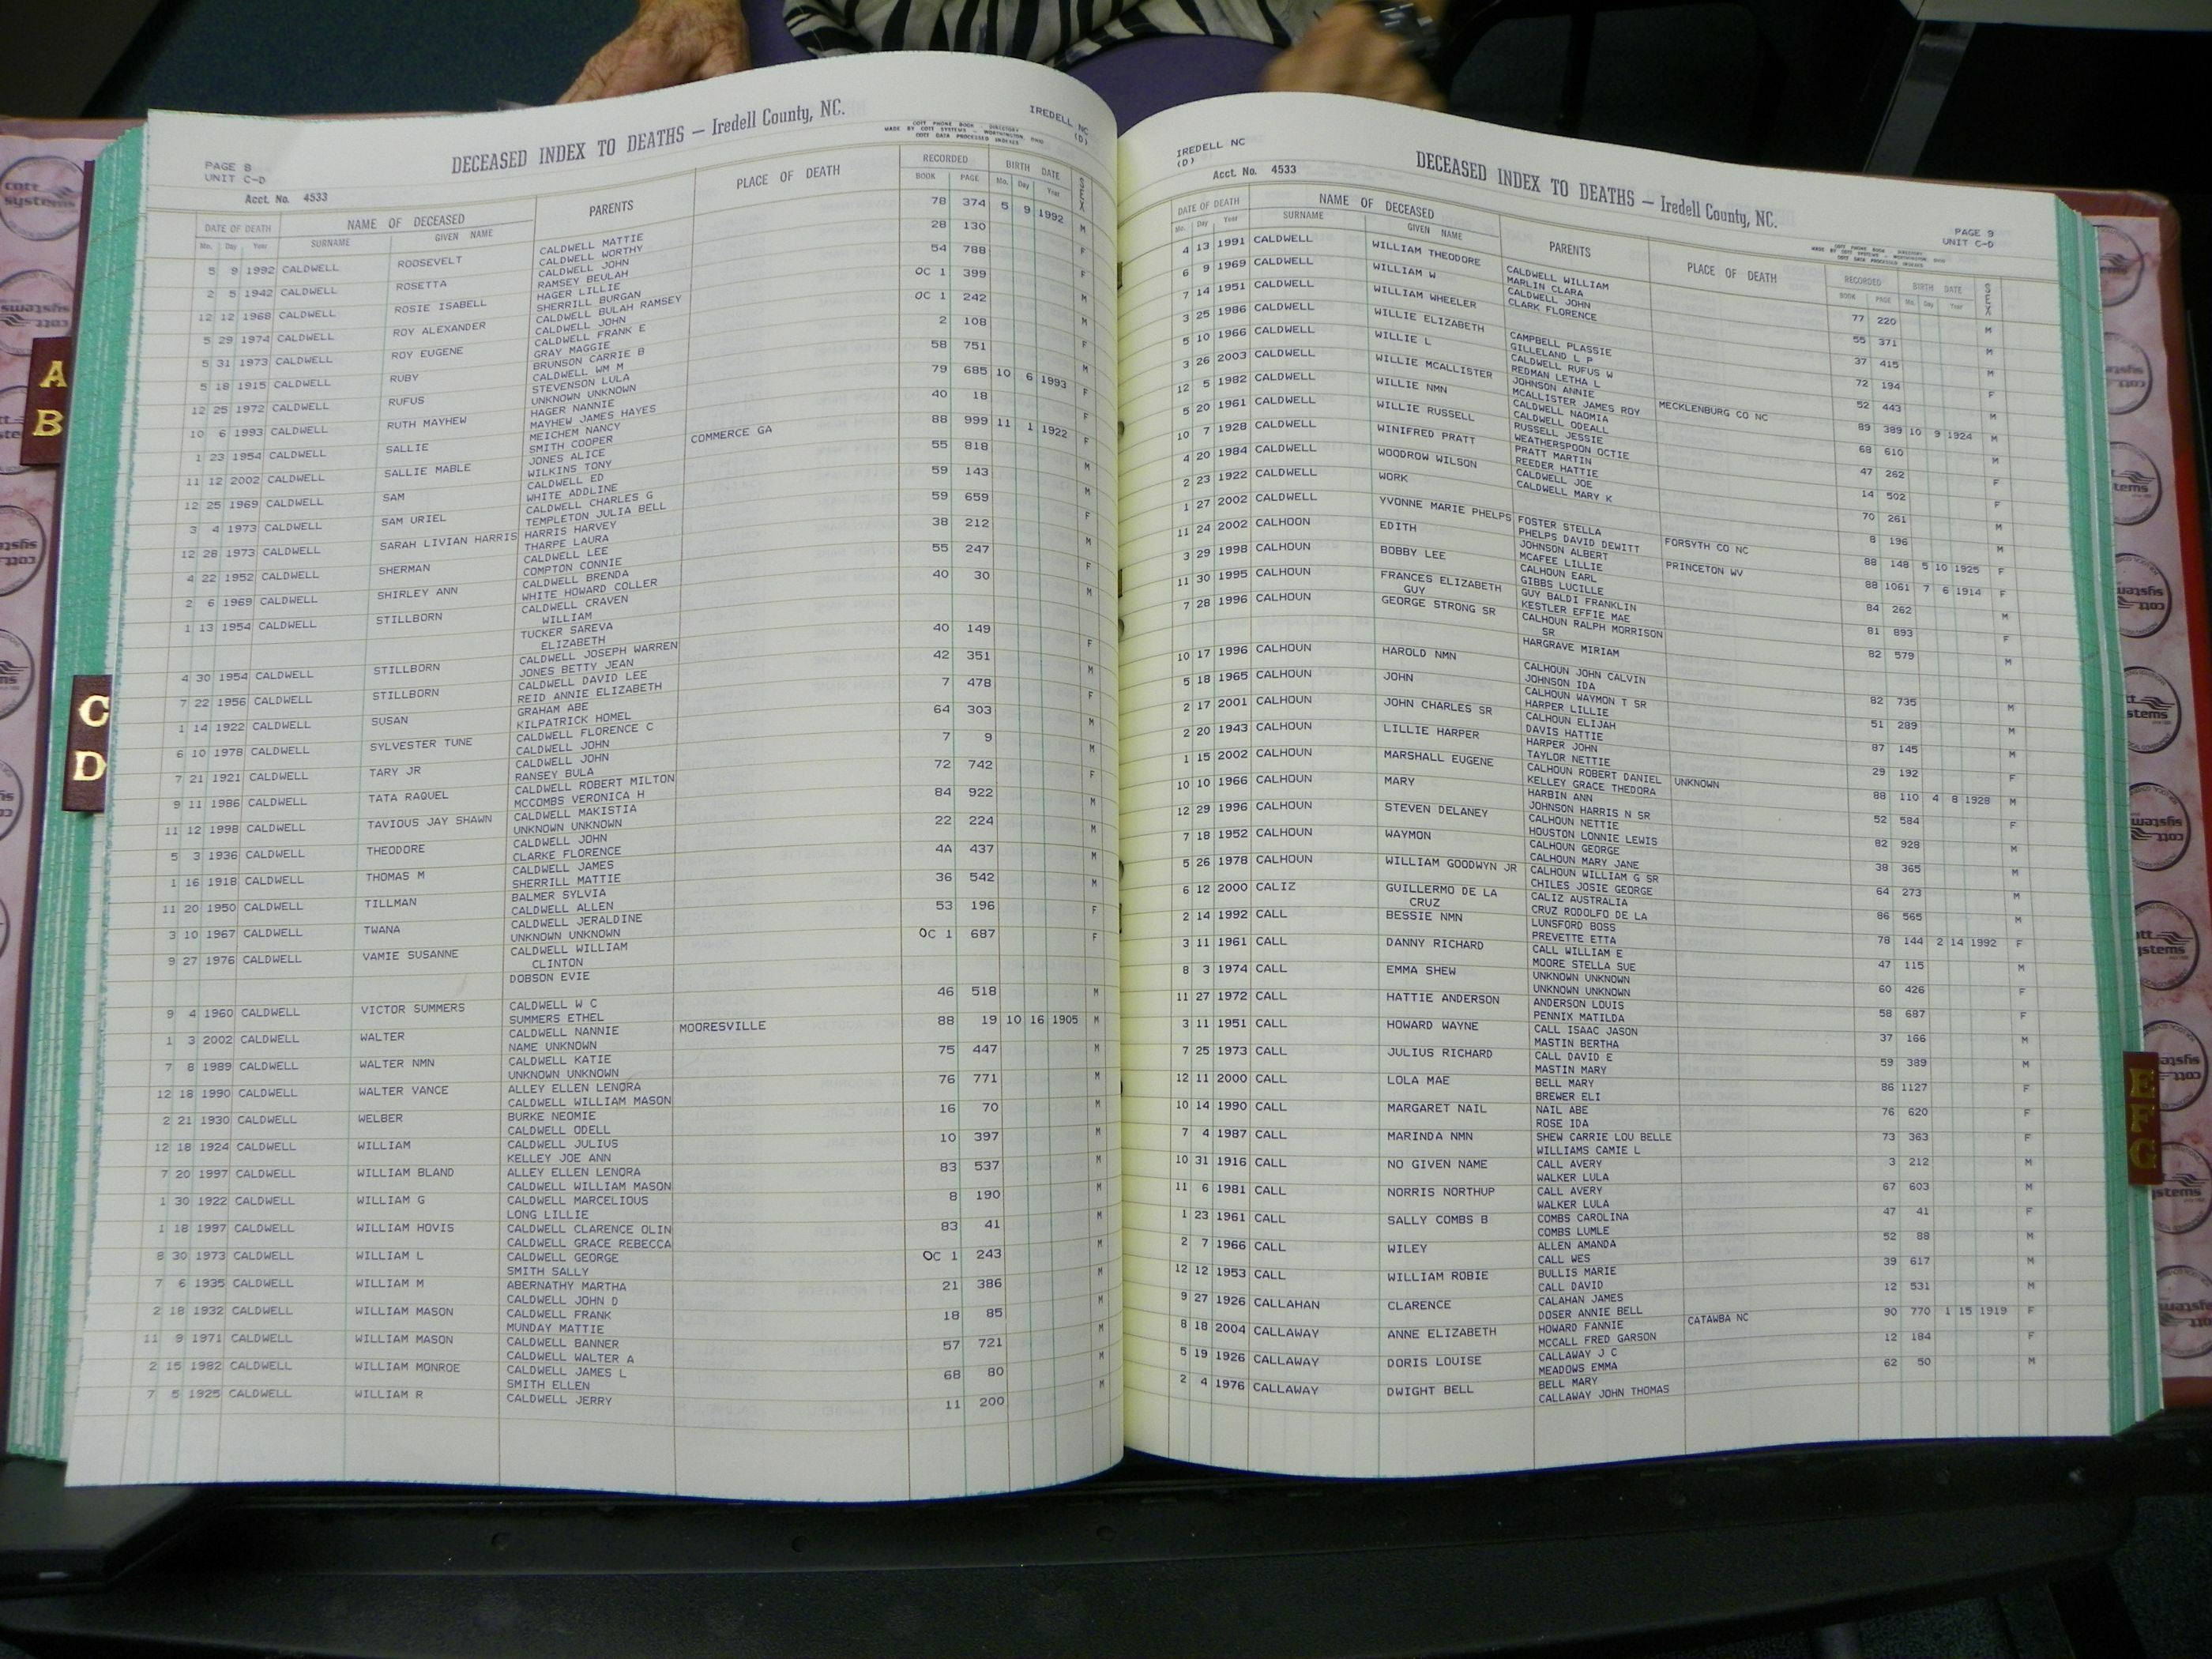 cott systems
A
B
C
D
E
F
G
IREDELL NC
(D)
DECEASED INDEX TO DEATHS — Iredell County, NC.
COTT PHONE BOOK - DIRECTORY
MADE BY COTT SYSTEMS - WORTHINGTON, OHIO
COTT DATA PROCESSED INDEXES
PAGE 8
UNIT C-D
Acct. No. 4533
DATE OF DEATH NAME OF DECEASED PARENTS PLACE OF DEATH RECORDED BIRTH DATE SEX
Mo. Day Year SURNAME GIVEN NAME BOOK PAGE Mo. Day Year
5 9 1992 CALDWELL ROOSEVELT CALDWELL MATTIE 78 374 5 9 1992 M
CALDWELL WORTHY
2 5 1942 CALDWELL ROSETTA CALDWELL JOHN 28 130 F
RAMSEY BEULAH
12 12 1968 CALDWELL ROSIE ISABELL HAGER LILLIE 54 788 F
SHERRILL BURGAN
5 29 1974 CALDWELL ROY ALEXANDER CALDWELL BULAH RAMSEY OC 1 399 M
CALDWELL JOHN
5 31 1973 CALDWELL ROY EUGENE CALDWELL FRANK E OC 1 242 M
GRAY MAGGIE
5 18 1915 CALDWELL RUBY BRUNSON CARRIE B 2 108 F
CALDWELL WM M
12 25 1972 CALDWELL RUFUS STEVENSON LULA 58 751 M
UNKNOWN UNKNOWN
10 6 1993 CALDWELL RUTH MAYHEW HAGER NANNIE 79 685 10 6 1993 F
MAYHEW JAMES HAYES
1 23 1954 CALDWELL SALLIE MEICHEM NANCY 40 18 F
SMITH COOPER
11 12 2002 CALDWELL SALLIE MABLE JONES ALICE COMMERCE GA 88 999 11 1 1922 F
WILKINS TONY
12 25 1969 CALDWELL SAM CALDWELL ED 55 818 M
WHITE ADDLINE
3 4 1973 CALDWELL SAM URIEL CALDWELL CHARLES G 59 143 M
TEMPLETON JULIA BELL
12 28 1973 CALDWELL SARAH LIVIAN HARRIS HARRIS HARVEY 59 659 F
THARPE LAURA
4 22 1952 CALDWELL SHERMAN CALDWELL LEE 38 212 M
COMPTON CONNIE
2 6 1969 CALDWELL SHIRLEY ANN CALDWELL BRENDA 55 247 F
WHITE HOWARD COLLER
1 13 1954 CALDWELL STILLBORN CALDWELL CRAVEN 40 30 M
WILLIAM
TUCKER SAREVA
ELIZABETH
4 30 1954 CALDWELL STILLBORN CALDWELL JOSEPH WARREN 40 149 F
JONES BETTY JEAN
7 22 1956 CALDWELL STILLBORN CALDWELL DAVID LEE 42 351 M
REID ANNIE ELIZABETH
1 14 1922 CALDWELL SUSAN GRAHAM ABE 7 478 F
KILPATRICK HOMEL
6 10 1978 CALDWELL SYLVESTER TUNE CALDWELL FLORENCE C 64 303 M
CALDWELL JOHN
7 21 1921 CALDWELL TARY JR CALDWELL JOHN 7 9 M
RANSEY BULA
9 11 1986 CALDWELL TATA RAQUEL CALDWELL ROBERT MILTON 72 742 F
MCCOMBS VERONICA H
11 12 1998 CALDWELL TAVIOUS JAY SHAWN CALDWELL MAKISTIA 84 922 M
UNKNOWN UNKNOWN
5 3 1936 CALDWELL THEODORE CALDWELL JOHN 22 224 M
CLARKE FLORENCE
1 16 1918 CALDWELL THOMAS M CALDWELL JAMES 4A 437 M
SHERRILL MATTIE
11 20 1950 CALDWELL TILLMAN BALMER SYLVIA 36 542 M
CALDWELL ALLEN
3 10 1967 CALDWELL TWANA CALDWELL JERALDINE 53 196 F
UNKNOWN UNKNOWN
9 27 1976 CALDWELL VAMIE SUSANNE CALDWELL WILLIAM OC 1 687 F
CLINTON
DOBSON EVIE
9 4 1960 CALDWELL VICTOR SUMMERS CALDWELL W C 46 518 M
SUMMERS ETHEL
1 3 2002 CALDWELL WALTER CALDWELL NANNIE MOORESVILLE 88 19 10 16 1905 M
NAME UNKNOWN
7 8 1989 CALDWELL WALTER NMN CALDWELL KATIE 75 447 M
UNKNOWN UNKNOWN
12 18 1990 CALDWELL WALTER VANCE ALLEY ELLEN LENORA 76 771 M
CALDWELL WILLIAM MASON
2 21 1930 CALDWELL WELBER BURKE NEOMIE 16 70 M
CALDWELL ODELL
12 18 1924 CALDWELL WILLIAM CALDWELL JULIUS 10 397 M
KELLEY JOE ANN
7 20 1997 CALDWELL WILLIAM BLAND ALLEY ELLEN LENORA 83 537 M
CALDWELL WILLIAM MASON
1 30 1922 CALDWELL WILLIAM G CALDWELL MARCELIOUS 8 190 M
LONG LILLIE
1 18 1997 CALDWELL WILLIAM HOVIS CALDWELL CLARENCE OLIN 83 41 M
CALDWELL GRACE REBECCA
8 30 1973 CALDWELL WILLIAM L CALDWELL GEORGE OC 1 243 M
SMITH SALLY
7 6 1935 CALDWELL WILLIAM M ABERNATHY MARTHA 21 386 M
CALDWELL JOHN D
2 18 1932 CALDWELL WILLIAM MASON CALDWELL FRANK 18 85 M
MUNDAY MATTIE
11 9 1971 CALDWELL WILLIAM MASON CALDWELL BANNER 57 721 M
CALDWELL WALTER A
2 15 1982 CALDWELL WILLIAM MONROE CALDWELL JAMES L 68 80 M
SMITH ELLEN
7 5 1925 CALDWELL WILLIAM R CALDWELL JERRY 11 200 M
IREDELL NC
(D)
Acct. No. 4533
DECEASED INDEX TO DEATHS — Iredell County, NC.
COTT PHONE BOOK - DIRECTORY
MADE BY COTT SYSTEMS - WORTHINGTON, OHIO
COTT DATA PROCESSED INDEXES
PAGE 9
UNIT C-D
DATE OF DEATH NAME OF DECEASED PARENTS PLACE OF DEATH RECORDED BIRTH DATE SEX
Mo. Day Year SURNAME GIVEN NAME BOOK PAGE Mo. Day Year
4 13 1991 CALDWELL WILLIAM THEODORE CALDWELL WILLIAM 77 220 M
MARLIN CLARA
6 9 1969 CALDWELL WILLIAM W CALDWELL JOHN 55 371 M
CLARK FLORENCE
7 14 1951 CALDWELL WILLIAM WHEELER 37 415 M
3 25 1986 CALDWELL WILLIE ELIZABETH CAMPBELL PLASSIE 72 194 F
GILLELAND L P
5 10 1966 CALDWELL WILLIE L CALDWELL RUFUS W 52 443 M
REDMAN LETHA L
3 26 2003 CALDWELL WILLIE MCALLISTER JOHNSON ANNIE MECKLENBURG CO NC 89 389 10 9 1924 M
MCALLISTER JAMES ROY
12 5 1982 CALDWELL WILLIE NMN CALDWELL NAOMIA 68 610 M
CALDWELL ODEALL
5 20 1961 CALDWELL WILLIE RUSSELL RUSSELL JESSIE 47 262 F
WEATHERSPOON OCTIE
10 7 1928 CALDWELL WINIFRED PRATT PRATT MARTIN 14 502 F
REEDER HATTIE
4 20 1984 CALDWELL WOODROW WILSON CALDWELL JOE 70 261 M
CALDWELL MARY K
2 23 1922 CALDWELL WORK 8 196 M
1 27 2002 CALDWELL YVONNE MARIE PHELPS FOSTER STELLA FORSYTH CO NC 88 148 5 10 1925 F
PHELPS DAVID DEWITT
11 24 2002 CALHOON EDITH JOHNSON ALBERT PRINCETON WV 88 1061 7 6 1914 F
MCAFEE LILLIE
3 29 1998 CALHOUN BOBBY LEE CALHOUN EARL 84 262 M
GIBBS LUCILLE
11 30 1995 CALHOUN FRANCES ELIZABETH GUY BALDI FRANKLIN 81 893 F
GUY KESTLER EFFIE MAE
7 28 1996 CALHOUN GEORGE STRONG SR CALHOUN RALPH MORRISON 82 579 M
SR
HARGRAVE MIRIAM
10 17 1996 CALHOUN HAROLD NMN CALHOUN JOHN CALVIN 82 735 M
JOHNSON IDA
5 18 1965 CALHOUN JOHN CALHOUN WAYMON T SR 51 289 M
HARPER LILLIE
2 17 2001 CALHOUN JOHN CHARLES SR CALHOUN ELIJAH 87 145 M
DAVIS HATTIE
2 20 1943 CALHOUN LILLIE HARPER HARPER JOHN 29 192 F
TAYLOR NETTIE
1 15 2002 CALHOUN MARSHALL EUGENE CALHOUN ROBERT DANIEL UNKNOWN 88 110 4 8 1928 M
KELLEY GRACE THEDORA
10 10 1966 CALHOUN MARY HARBIN ANN 52 584 F
JOHNSON HARRIS N SR
12 29 1996 CALHOUN STEVEN DELANEY CALHOUN NETTIE 82 928 M
HOUSTON LONNIE LEWIS
7 18 1952 CALHOUN WAYMON CALHOUN GEORGE 38 365 M
CALHOUN MARY JANE
5 26 1978 CALHOUN WILLIAM GOODWYN JR CALHOUN WILLIAM G SR 64 273 M
CHILES JOSIE GEORGE
6 12 2000 CALIZ GUILLERMO DE LA CALIZ AUSTRALIA 86 565 M
CRUZ CRUZ RODOLFO DE LA
2 14 1992 CALL BESSIE NMN LUNSFORD BOSS 78 144 2 14 1992 F
PREVETTE ETTA
3 11 1961 CALL DANNY RICHARD CALL WILLIAM E 47 115 M
MOORE STELLA SUE
8 3 1974 CALL EMMA SHEW UNKNOWN UNKNOWN 60 426 F
UNKNOWN UNKNOWN
11 27 1972 CALL HATTIE ANDERSON ANDERSON LOUIS 58 687 F
PENNIX MATILDA
3 11 1951 CALL HOWARD WAYNE CALL ISAAC JASON 37 166 M
MASTIN BERTHA
7 25 1973 CALL JULIUS RICHARD CALL DAVID E 59 389 M
MASTIN MARY
12 11 2000 CALL LOLA MAE BELL MARY 86 1127 F
BREWER ELI
10 14 1990 CALL MARGARET NAIL NAIL ABE 76 620 F
ROSE IDA
7 4 1987 CALL MARINDA NMN SHEW CARRIE LOU BELLE 73 363 F
WILLIAMS CAMIE L
10 31 1916 CALL NO GIVEN NAME CALL AVERY 3 212 M
WALKER LULA
11 6 1981 CALL NORRIS NORTHUP CALL AVERY 67 603 M
WALKER LULA
1 23 1961 CALL SALLY COMBS B COMBS CAROLINA 47 41 F
COMBS LUMLE
2 7 1966 CALL WILEY ALLEN AMANDA 52 88 M
CALL WES
12 12 1953 CALL WILLIAM ROBIE BULLIS MARIE 39 617 M
CALL DAVID
9 27 1926 CALLAHAN CLARENCE CALAHAN JAMES 12 531 M
DOSER ANNIE BELL
8 18 2004 CALLAWAY ANNE ELIZABETH HOWARD FANNIE CATAWBA NC 90 770 1 15 1919 F
MCCALL FRED GARSON
5 19 1926 CALLAWAY DORIS LOUISE CALLAWAY J C 12 184 F
MEADOWS EMMA
2 4 1976 CALLAWAY DWIGHT BELL BELL MARY 62 50 M
CALLAWAY JOHN THOMAS